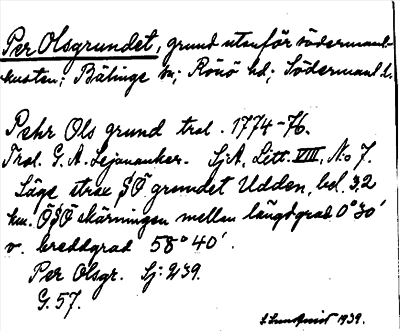 Per Olsgrundet, grund utanför södermanl.-
kusten; Bälinge sn; Rönö hd; Södermanl. l.
Pehr Ols grund trol. 1774-76.
Trol. G. A. Lejonanker. SjA, Litt. VIII, No 7.
Läge strax SÖ grundet Udden, bel. 3,2
km. ÖSÖ skärningen mellan längdgrad 0° 30'
o. breddgrad 58° 40'.
Per Olsgr. Sj: 239.
G. 57.
1939.